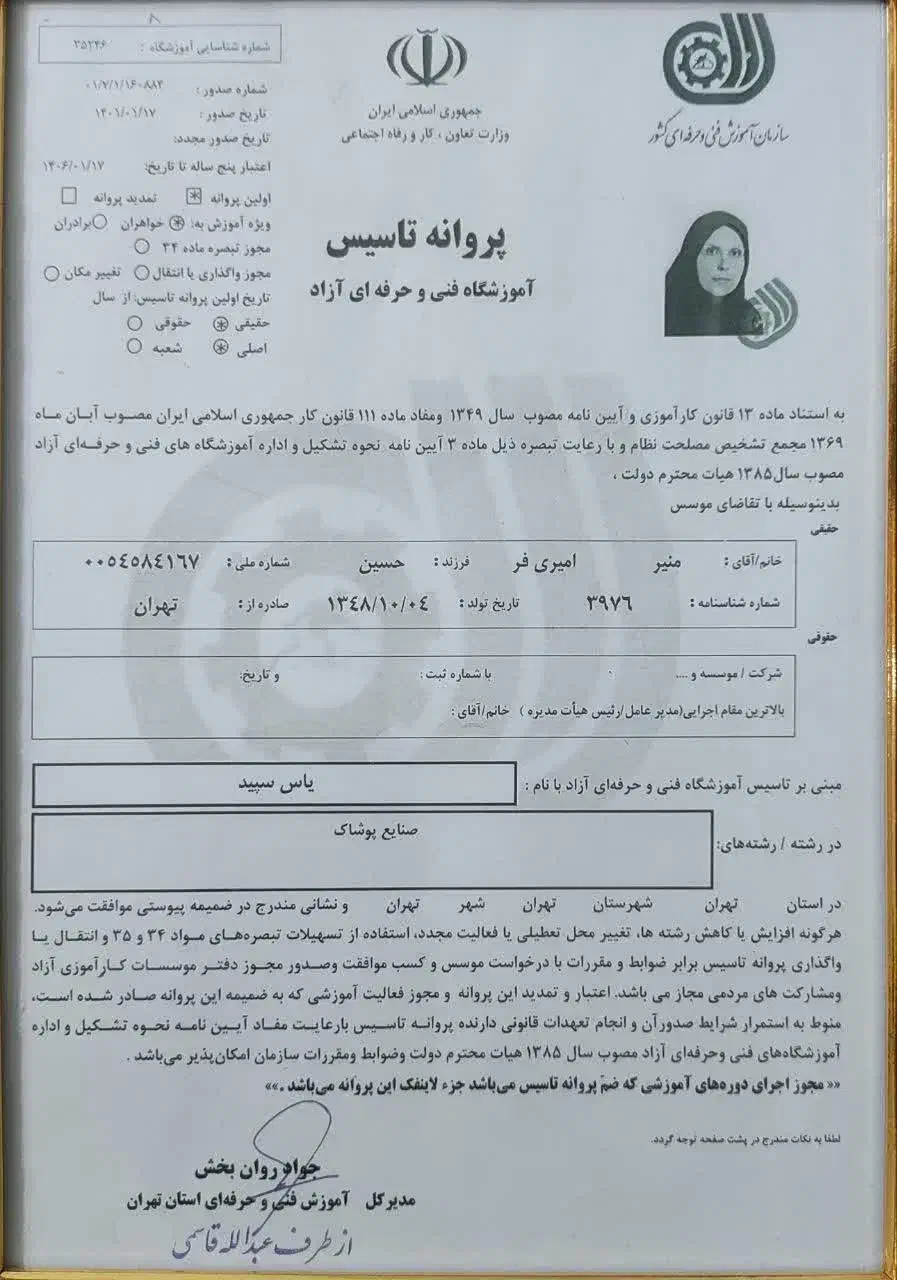 سازمان آموزش فنی و حرفه‌ای کشور
جمهوری اسلامی ایران
وزارت تعاون ، کار و رفاه اجتماعی
شماره شناسایی آموزشگاه : ۳۵۲۴۶
شماره صدور : ۰۱/۷/۱/۱۶۰۸۸۴
تاریخ صدور : ۱۴۰۱/۰۱/۱۷
تاریخ صدور مجدد:
اعتبار پنج ساله تا تاریخ: ۱۴۰۶/۰۱/۱۷
اولین پروانه تمدید پروانه
ویژه آموزش به: خواهران برادران
مجوز تبصره ماده ۳۴
مجوز واگذاری یا انتقال تغییر مکان
تاریخ اولین پروانه تاسیس: از سال
حقیقی حقوقی
اصلی شعبه
پروانه تاسیس
آموزشگاه فنی و حرفه ای آزاد
به استناد ماده ۱۳ قانون کارآموزی و آیین نامه مصوب سال ۱۳۴۹ ومفاد ماده ۱۱۱ قانون کار جمهوری اسلامی ایران مصوب آبان ماه
۱۳۶۹ مجمع تشخیص مصلحت نظام و با رعایت تبصره ذیل ماده ۳ آیین نامه نحوه تشکیل و اداره آموزشگاه های فنی و حرفه‌ای آزاد
مصوب سال۱۳۸۵ هیات محترم دولت ،
بدینوسیله با تقاضای موسس
حقیقی
خانم/آقای : منیر امیری فر فرزند : حسین شماره ملی : ۰۰۵۴۵۸۴۱۶۷
شماره شناسنامه : ۳۹۷۶ تاریخ تولد : ۱۳۴۸/۱۰/۰۴ صادره از : تهران
حقوقی
شرکت / موسسه و .... با شماره ثبت : و تاریخ:
بالاترین مقام اجرایی(مدیر عامل/رئیس هیأت مدیره ) خانم/آقای :
مبنی بر تاسیس آموزشگاه فنی و حرفه‌ای آزاد با نام : یاس سپید
در رشته / رشته‌های: صنایع پوشاک
در استان تهران شهرستان تهران شهر تهران و نشانی مندرج در ضمیمه پیوستی موافقت می‌شود.
هرگونه افزایش یا کاهش رشته ها، تغییر محل تعطیلی یا فعالیت مجدد، استفاده از تسهیلات تبصره‌های مواد ۳۴ و ۳۵ و انتقال یا
واگذاری پروانه تاسیس برابر ضوابط و مقررات با درخواست موسس و کسب موافقت وصدور مجوز دفتر موسسات کارآموزی آزاد
ومشارکت های مردمی مجاز می باشد. اعتبار و تمدید این پروانه و مجوز فعالیت آموزشی که به ضمیمه این پروانه صادر شده است،
منوط به استمرار شرایط صدورآن و انجام تعهدات قانونی دارنده پروانه تاسیس بارعایت مفاد آیین نامه نحوه تشکیل و اداره
آموزشگاه‌های فنی وحرفه‌ای آزاد مصوب سال ۱۳۸۵ هیات محترم دولت وضوابط ومقررات سازمان امکان‌پذیر می‌باشد .
«« مجوز اجرای دوره‌های آموزشی که ضمّ پروانه تاسیس می‌باشد جزء لاینفک این پروانه می‌باشد .»»
لطفا به نکات مندرج در پشت صفحه توجه گردد.
جواد روان بخش
مدیرکل آموزش فنی و حرفه‌ای استان تهران
از طرف عبدالله قاسمی